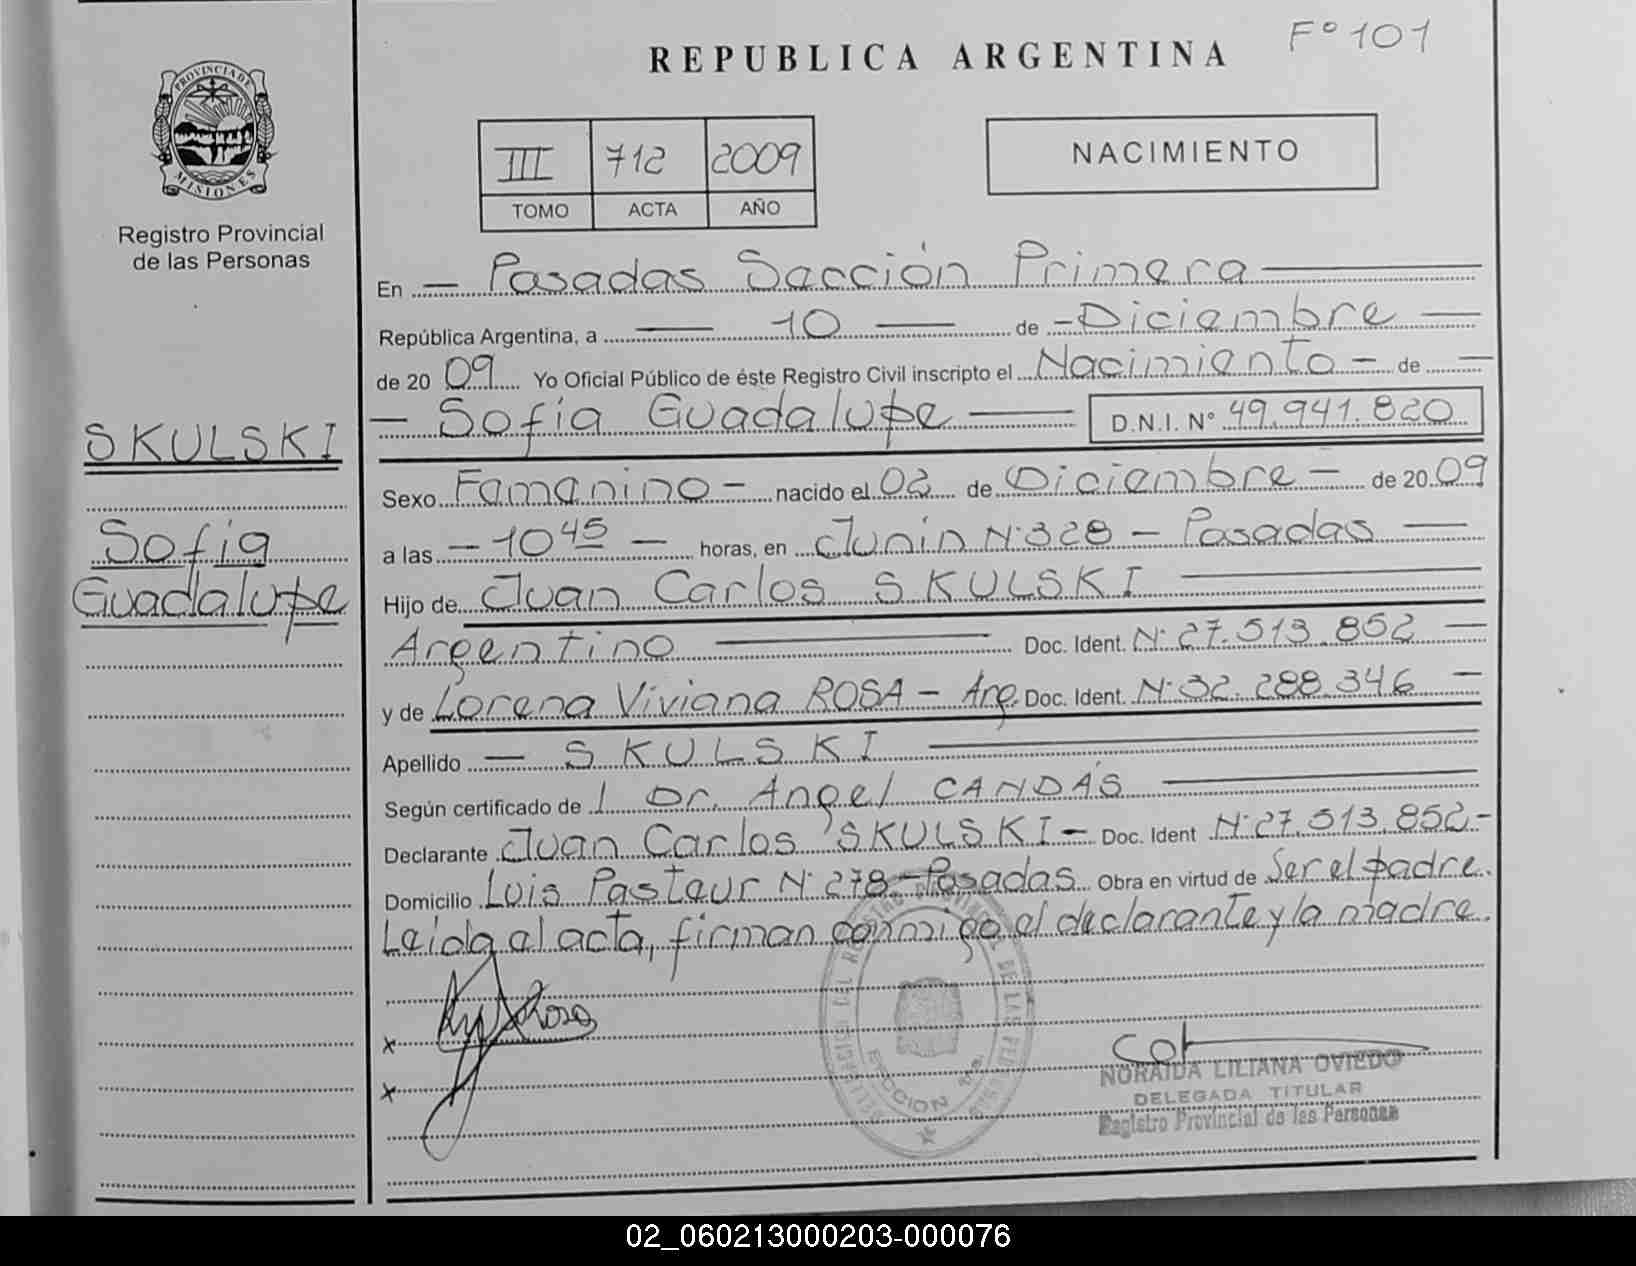 REPUBLICA ARGENTINA
Fº 101
PROVINCIA DE
MISIONES
Registro Provincial
de las Personas
III 712 2009
TOMO ACTA AÑO
NACIMIENTO
SKULSKI
Sofia
Guadalupe
En — Posadas Sección Primera —
República Argentina, a — 10 — de - Diciembre —
de 20 09 Yo Oficial Público de éste Registro Civil inscripto el Nacimiento - de —
— Sofia Guadalupe — D.N.I. Nº 49.941.820
Sexo Femenino - nacido el 02 de Diciembre - de 20 09
a las - 10 45 - horas, en Junin Nº 328 - Posadas —
Hijo de Juan Carlos SKULSKI —
Argentino — Doc. Ident. Nº 27.513.852 —
y de Lorena Viviana ROSA - Arg. Doc. Ident. Nº 32.288.346 —
Apellido — SKULSKI —
Según certificado de l Dr. Angel CANDAS —
Declarante Juan Carlos SKULSKI - Doc. Ident Nº 27.513.852 -
Domicilio Luis Pasteur Nº 278 - Posadas Obra en virtud de Ser el padre.
Leida el acta, firman conmigo el declarante y la madre.
x
x
Rosa
NORAIDA LILIANA OVIEDO
DELEGADA TITULAR
Registro Provincial de las Personas
02_060213000203-000076